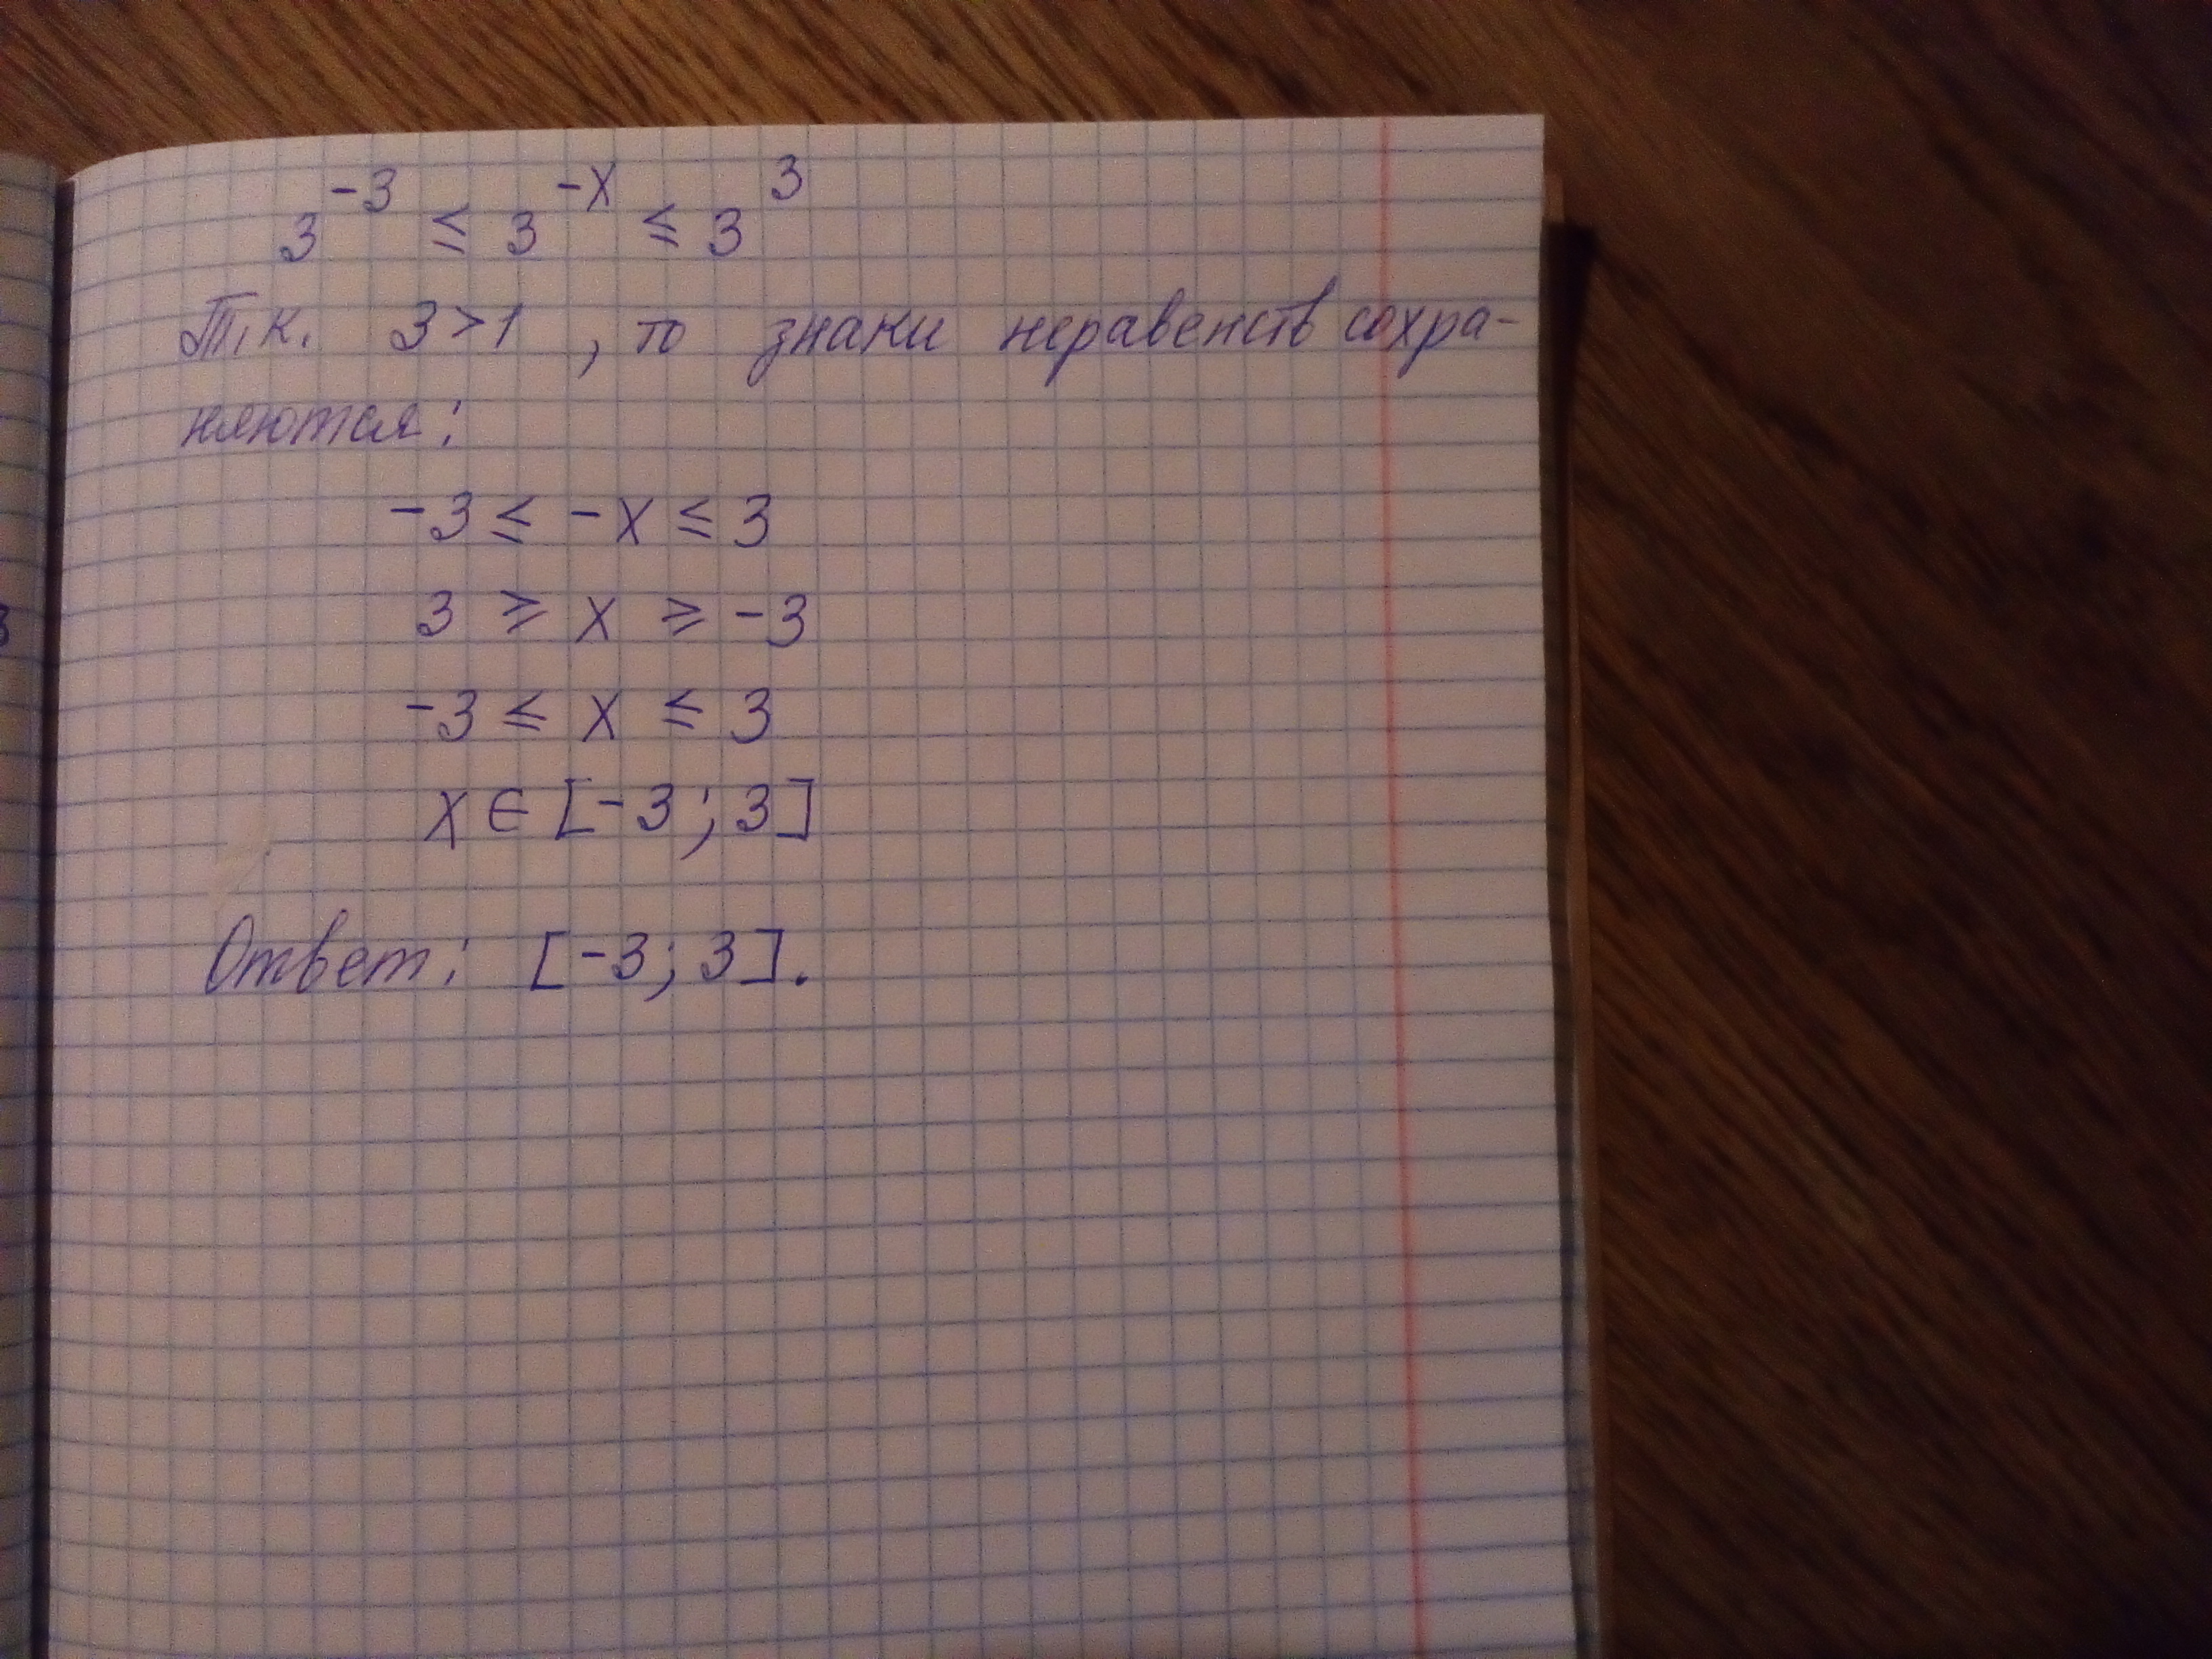 3^{-3} ≤ 3^{-x} ≤ 3^{3}
Т.к. 3>1, то знаки неравенств сохра-
няются:
-3 ≤ -x ≤ 3
3 ≥ x ≥ -3
-3 ≤ x ≤ 3
x ∈ [-3; 3]
Ответ: [-3; 3].